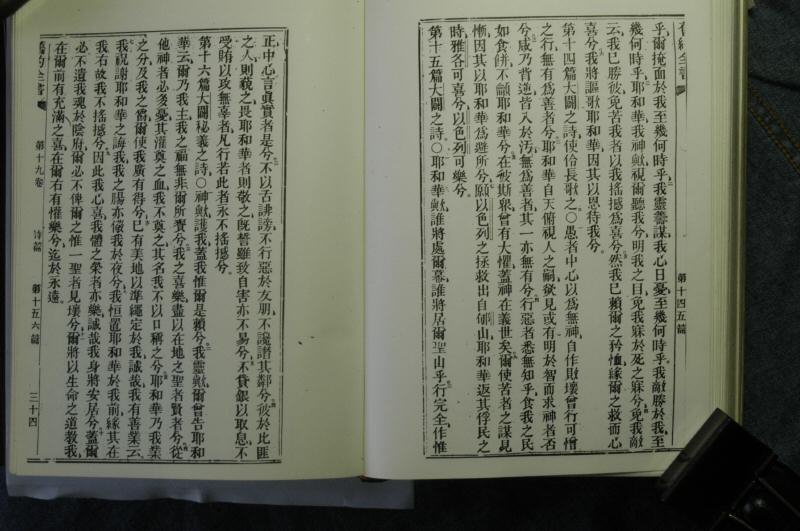 舊約全書
第十四五篇
乎爾掩面於我至幾何時乎我靈善謀我心日憂至幾何時乎我敵勝於我至
幾何時乎耶和華我神歟視爾聽我兮明我之目免我寐於死之寐兮免我敵
云我已勝彼免苦我者以我搖撼為喜兮然我已賴爾之矜恤緣爾之救而心
喜兮我將謳歌耶和華因其以恩待我兮
第十四篇大闢之詩使伶長歌之○愚者中心以為無神自作敗壞曾行可憎
之行無有為善者兮耶和華自天俯視人之嗣欲見或有明於智而求神者否
兮咸乃背逆皆入於污無為善者其一亦無有兮行惡者悉無知乎食我之民
如食餅不龥耶和華兮在彼斯眾曾有大懼蓋神在義世矣爾使苦者之謀見
慚因其以耶和華為避所兮願以色列之拯救出自郇山耶和華返其俘民之
時雅各可喜兮以色列可樂兮
第十五篇大闢之詩○耶和華歟誰將處爾幕誰將居爾聖山乎行完全作惟
正中心言眞實者是兮不以舌誹謗不行惡於友朋不讒譖其鄰兮彼於比匪
之人則藐之畏耶和華者則敬之旣誓雖致自害亦不易兮不貸銀以取息不
受賄以攻無辜者凡行若此者永不搖撼兮
第十六篇大闢秘義之詩○神歟護我蓋我惟爾是賴兮我靈歟爾曾告耶和
華云爾乃我主我之福無非爾所賚兮我之喜樂盡以在地之聖者賢者兮從
他神者必多憂其灌奠之血我不奠之其名我不以口稱之兮耶和華乃我業
之分及我之當爾使我廣有得兮已有美地以準繩定於我誠哉我有善業云
我祝謝耶和華之誨我我之腸亦儆我於夜兮我恒置耶和華於我前緣其在
我右故我不搖撼兮因此我心喜我體之榮者亦樂誠哉我身將安居兮蓋爾
必不遺我魂於陰府爾必不俾爾之惟一聖者見壞兮爾將以生命之道教我
在爾前有充滿之喜在爾右有懽樂兮迄於永遠
舊約全書
第十九卷
詩篇
第十五六篇
三十四